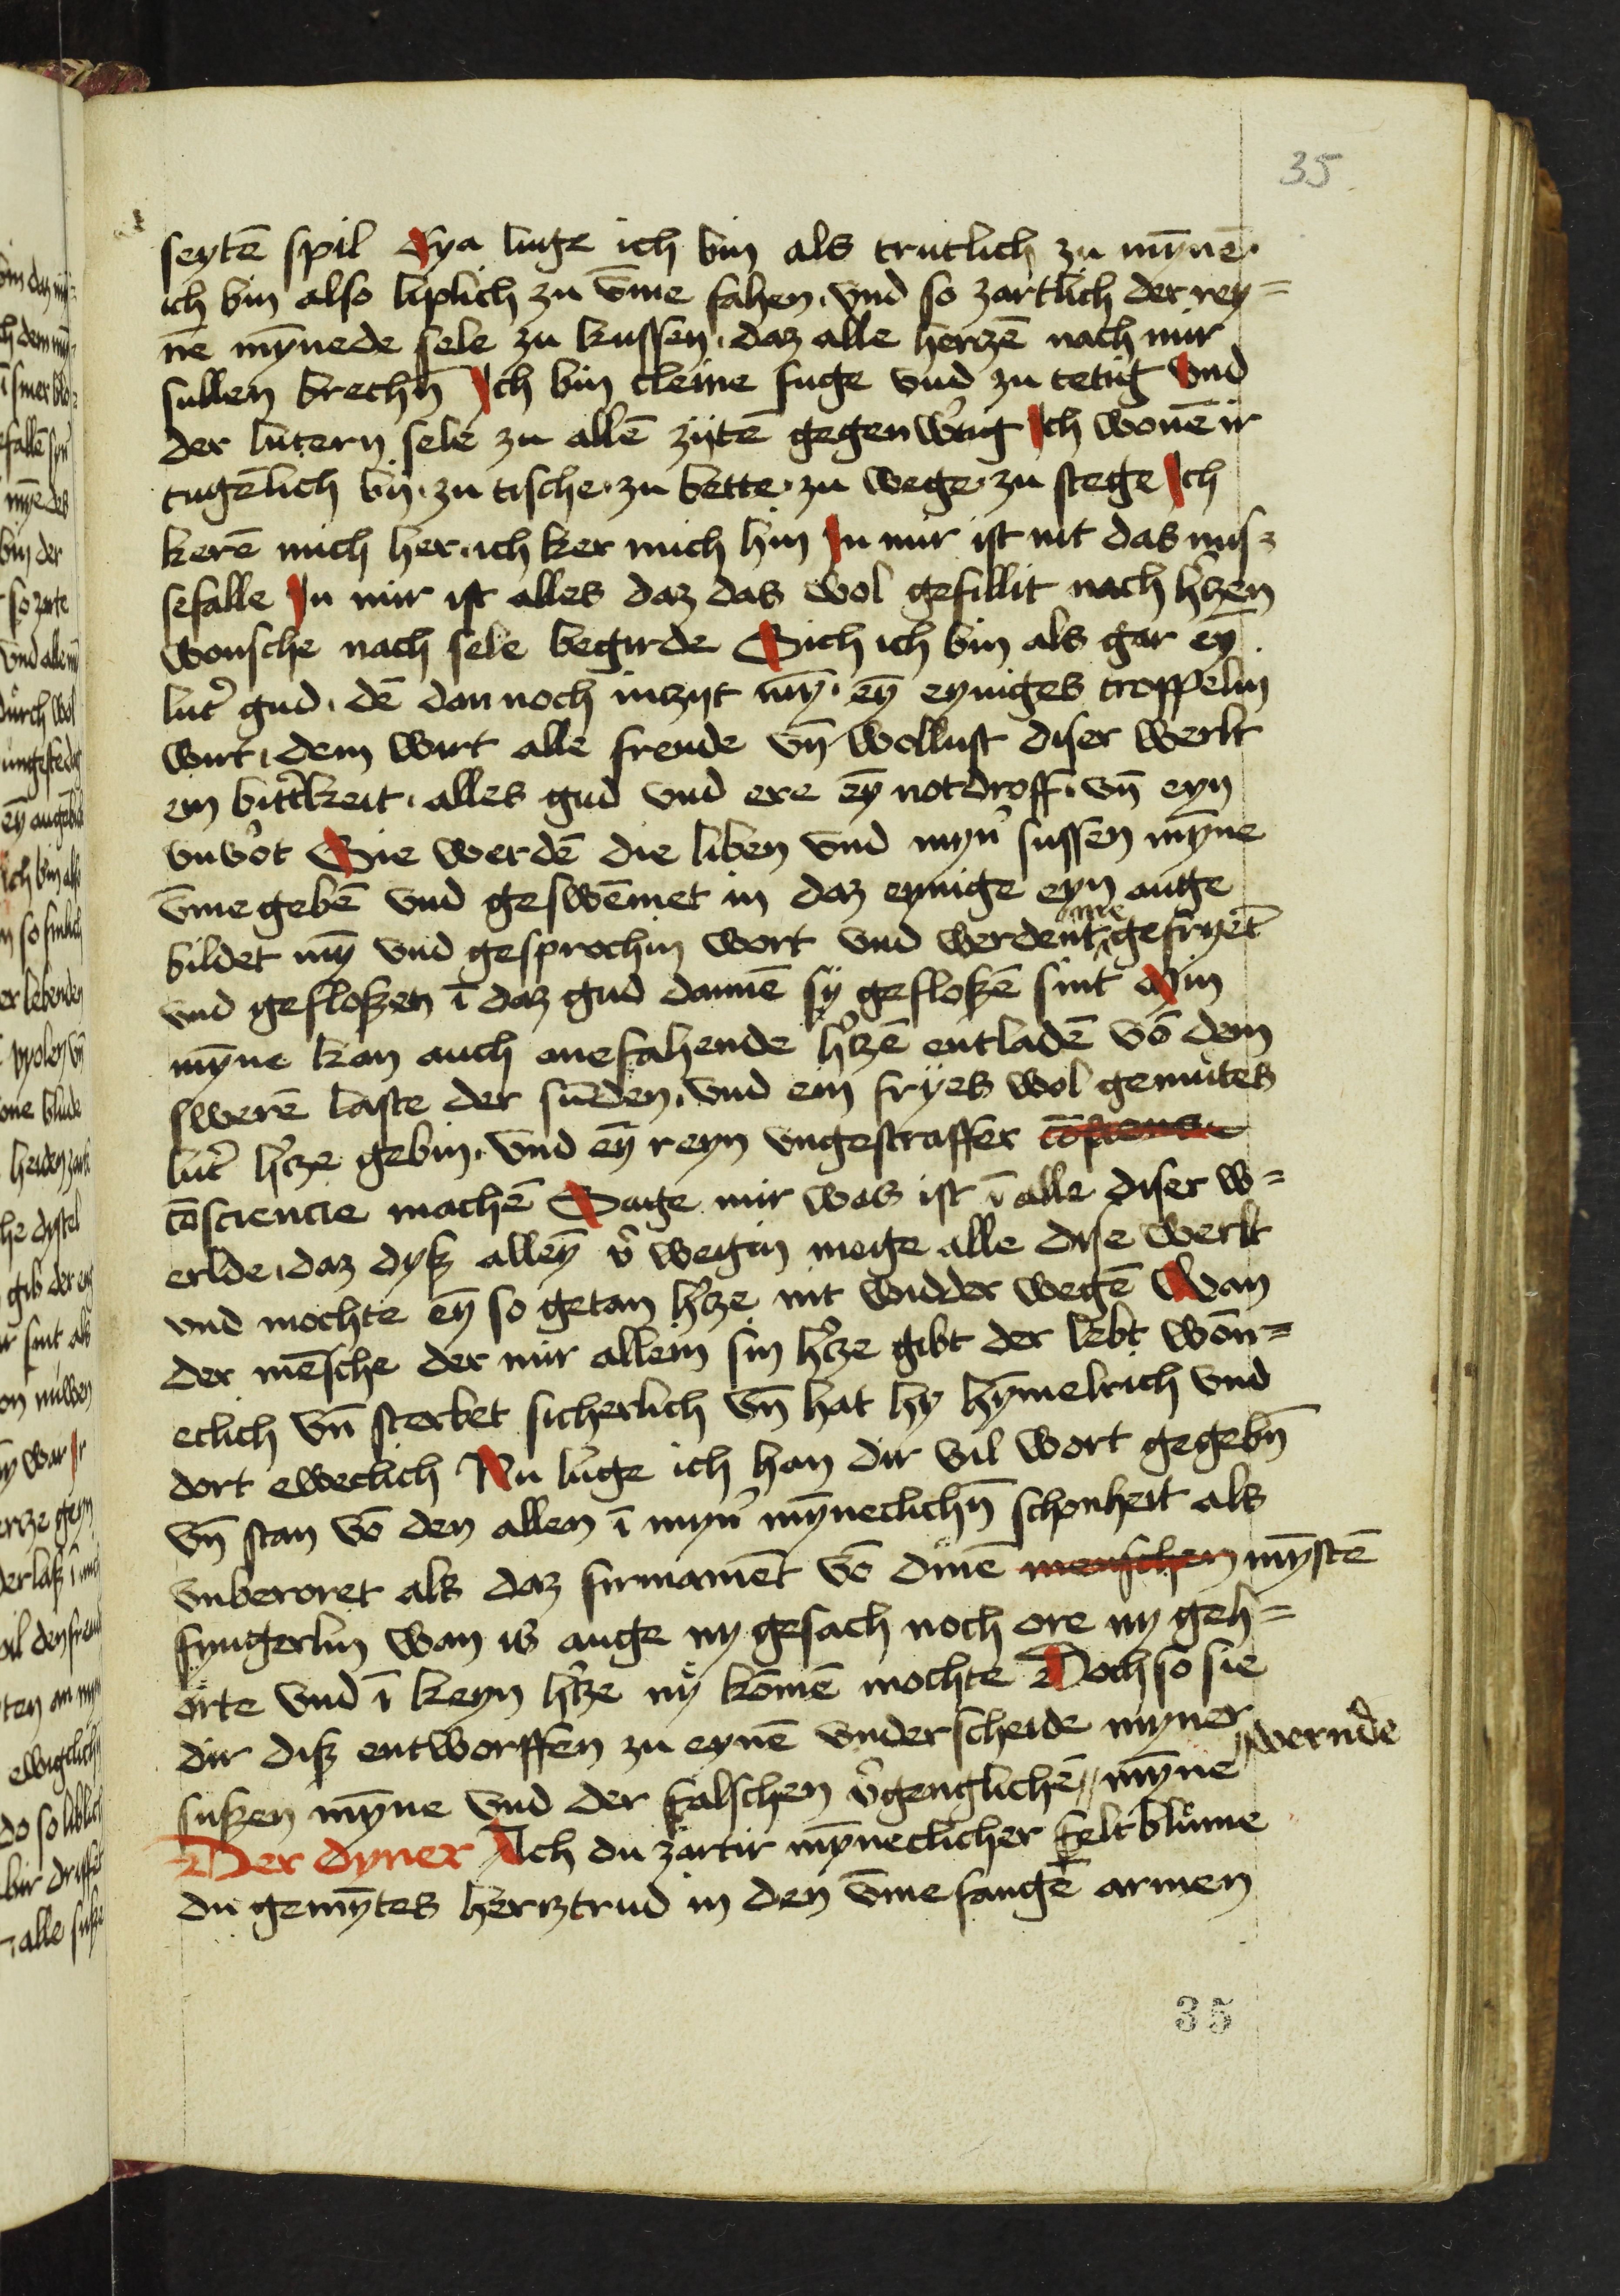 35
seytē spil Eya luge ich bin als trutlich zu mȳnē·
ich bin also liplich zu v̄me fahen· vnd so zartlich der rey=
nē mȳnede sele zu kussen· daz alle hertzē nach mir
sullen brechn̄ Ich bin cleine fuge vnd zu tetig vnd
der lutern sele zu allē zijtē gegenw̓tig Ich wonē ir
tugēlich bij· zu tische· zu bette· zu wege· zu stege Ich
kerē mich her· ich ker mich hin In mir ist nit das mis=
sefalle In mir ist alles daz das wol gefillit nach h̓tzen
wonsche nach sele begirde Sich ich bin als gar eȳ
lut̓ gud· dē dan noch inzijt mȳ· eȳ eyniges troppelin
wirt· dem wirt alle freude vn̄ wollust diser werlt
ein bitt̓keit· alles gud vnd ere eȳ notdroff· vn̄ eyn
vnv̓ot Sie werdē die liben vnd myn̓ sussen mȳne
v̄megebē vnd geswēmet in daz eynige eyn ange
bildet mȳ vnd gesprochin wort vnd werdent gefryet
vnd gefloßen ī daz gud dannē sÿ gefloßē sint Min
mȳne kan auch anefahende h̓tzē entladē vō dem
swerē laste der sūden· vnd ein fryes wol gemutes
lut̓ h̓tze gebin· vnd eȳ reyn vngestraffer
cōsciencie machē Sage mir was ist ī alle diser w=
erlde· daz dyß alleȳ v̓ wegin moge alle dise werlt
vnd mochte eȳ so getan h̓tze nit widder wegē Wan
der mēsche der mir allein sin h̓tze gibt der lebt wōn=
eclich vn̄ sterbet sicherlich vn̄ hat hy hȳmelrich vnd
dort eweclich Nu luge ich han dir vil wort gegebn̄
vn̄ stan vō den allen ī myn̓ mȳneclichn̄ schonheit als
vnberoret als daz firmamēt vō dinē menschen mȳstē
fyngerlin wan is auge ny gesach noch ore ny geh=
orte vnd ī keyn h̓tze nÿ komē mochte Doch so sie
dir diß entworffen zu eynē vnderscheide myner
sußen mȳne vnd der falschen v̓genglichē〃 mȳne 〃wernde
Der dyner Ach du zartir mȳneclicher feltblume
du gemȳtes hertztrud in den v̄me fangē armen
35